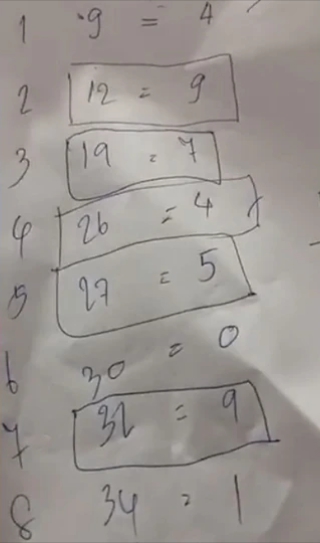 1 9 = 4
2 12 = 9
3 19 = 7
4 26 = 4
5 27 = 5
6 30 = 0
7 32 = 9
8 34 = 1